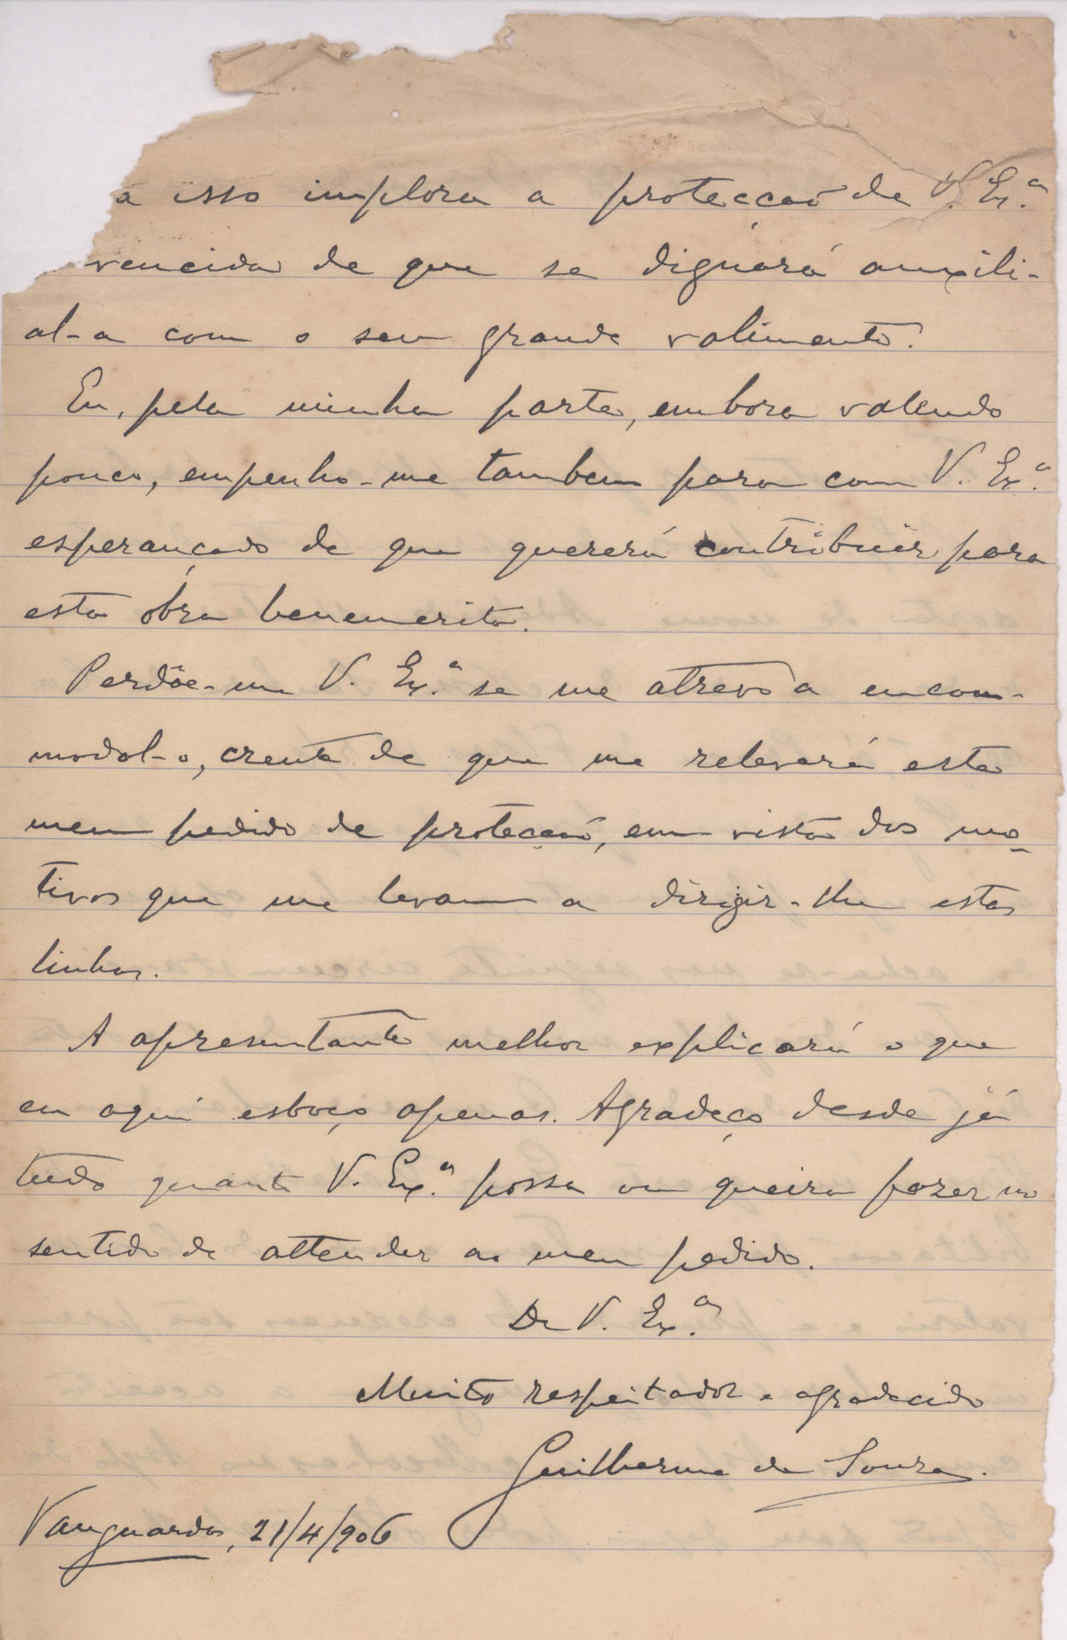 a isso implora a protecção de V. Ex.ª
vencida de que se dignará auxili-
al-a com o seu grande valimento.
Eu, pela minha parte, embora valendo
pouco, empenho-me tambem para com V. Ex.ª
esperançado de que quererá contribuir para
esta obra benemerita.
Perdôe-me V. Ex.ª se me atrevo a encom-
modal-o, crente de que me relevará este
meu pedido de protecção, em vista dos mo-
tivos que me levam a dirigir-lhe estas
linhas.
A apresentante melhor explicará o que
eu aqui esboço apenas. Agradeço desde já
tudo quanto V. Ex.ª possa ou queira fazer no
sentido de attender ao meu pedido.
De V. Ex.ª
Muito respeitador e agradecido
Guilherme de Souza.
Vanguarda, 21/4/906